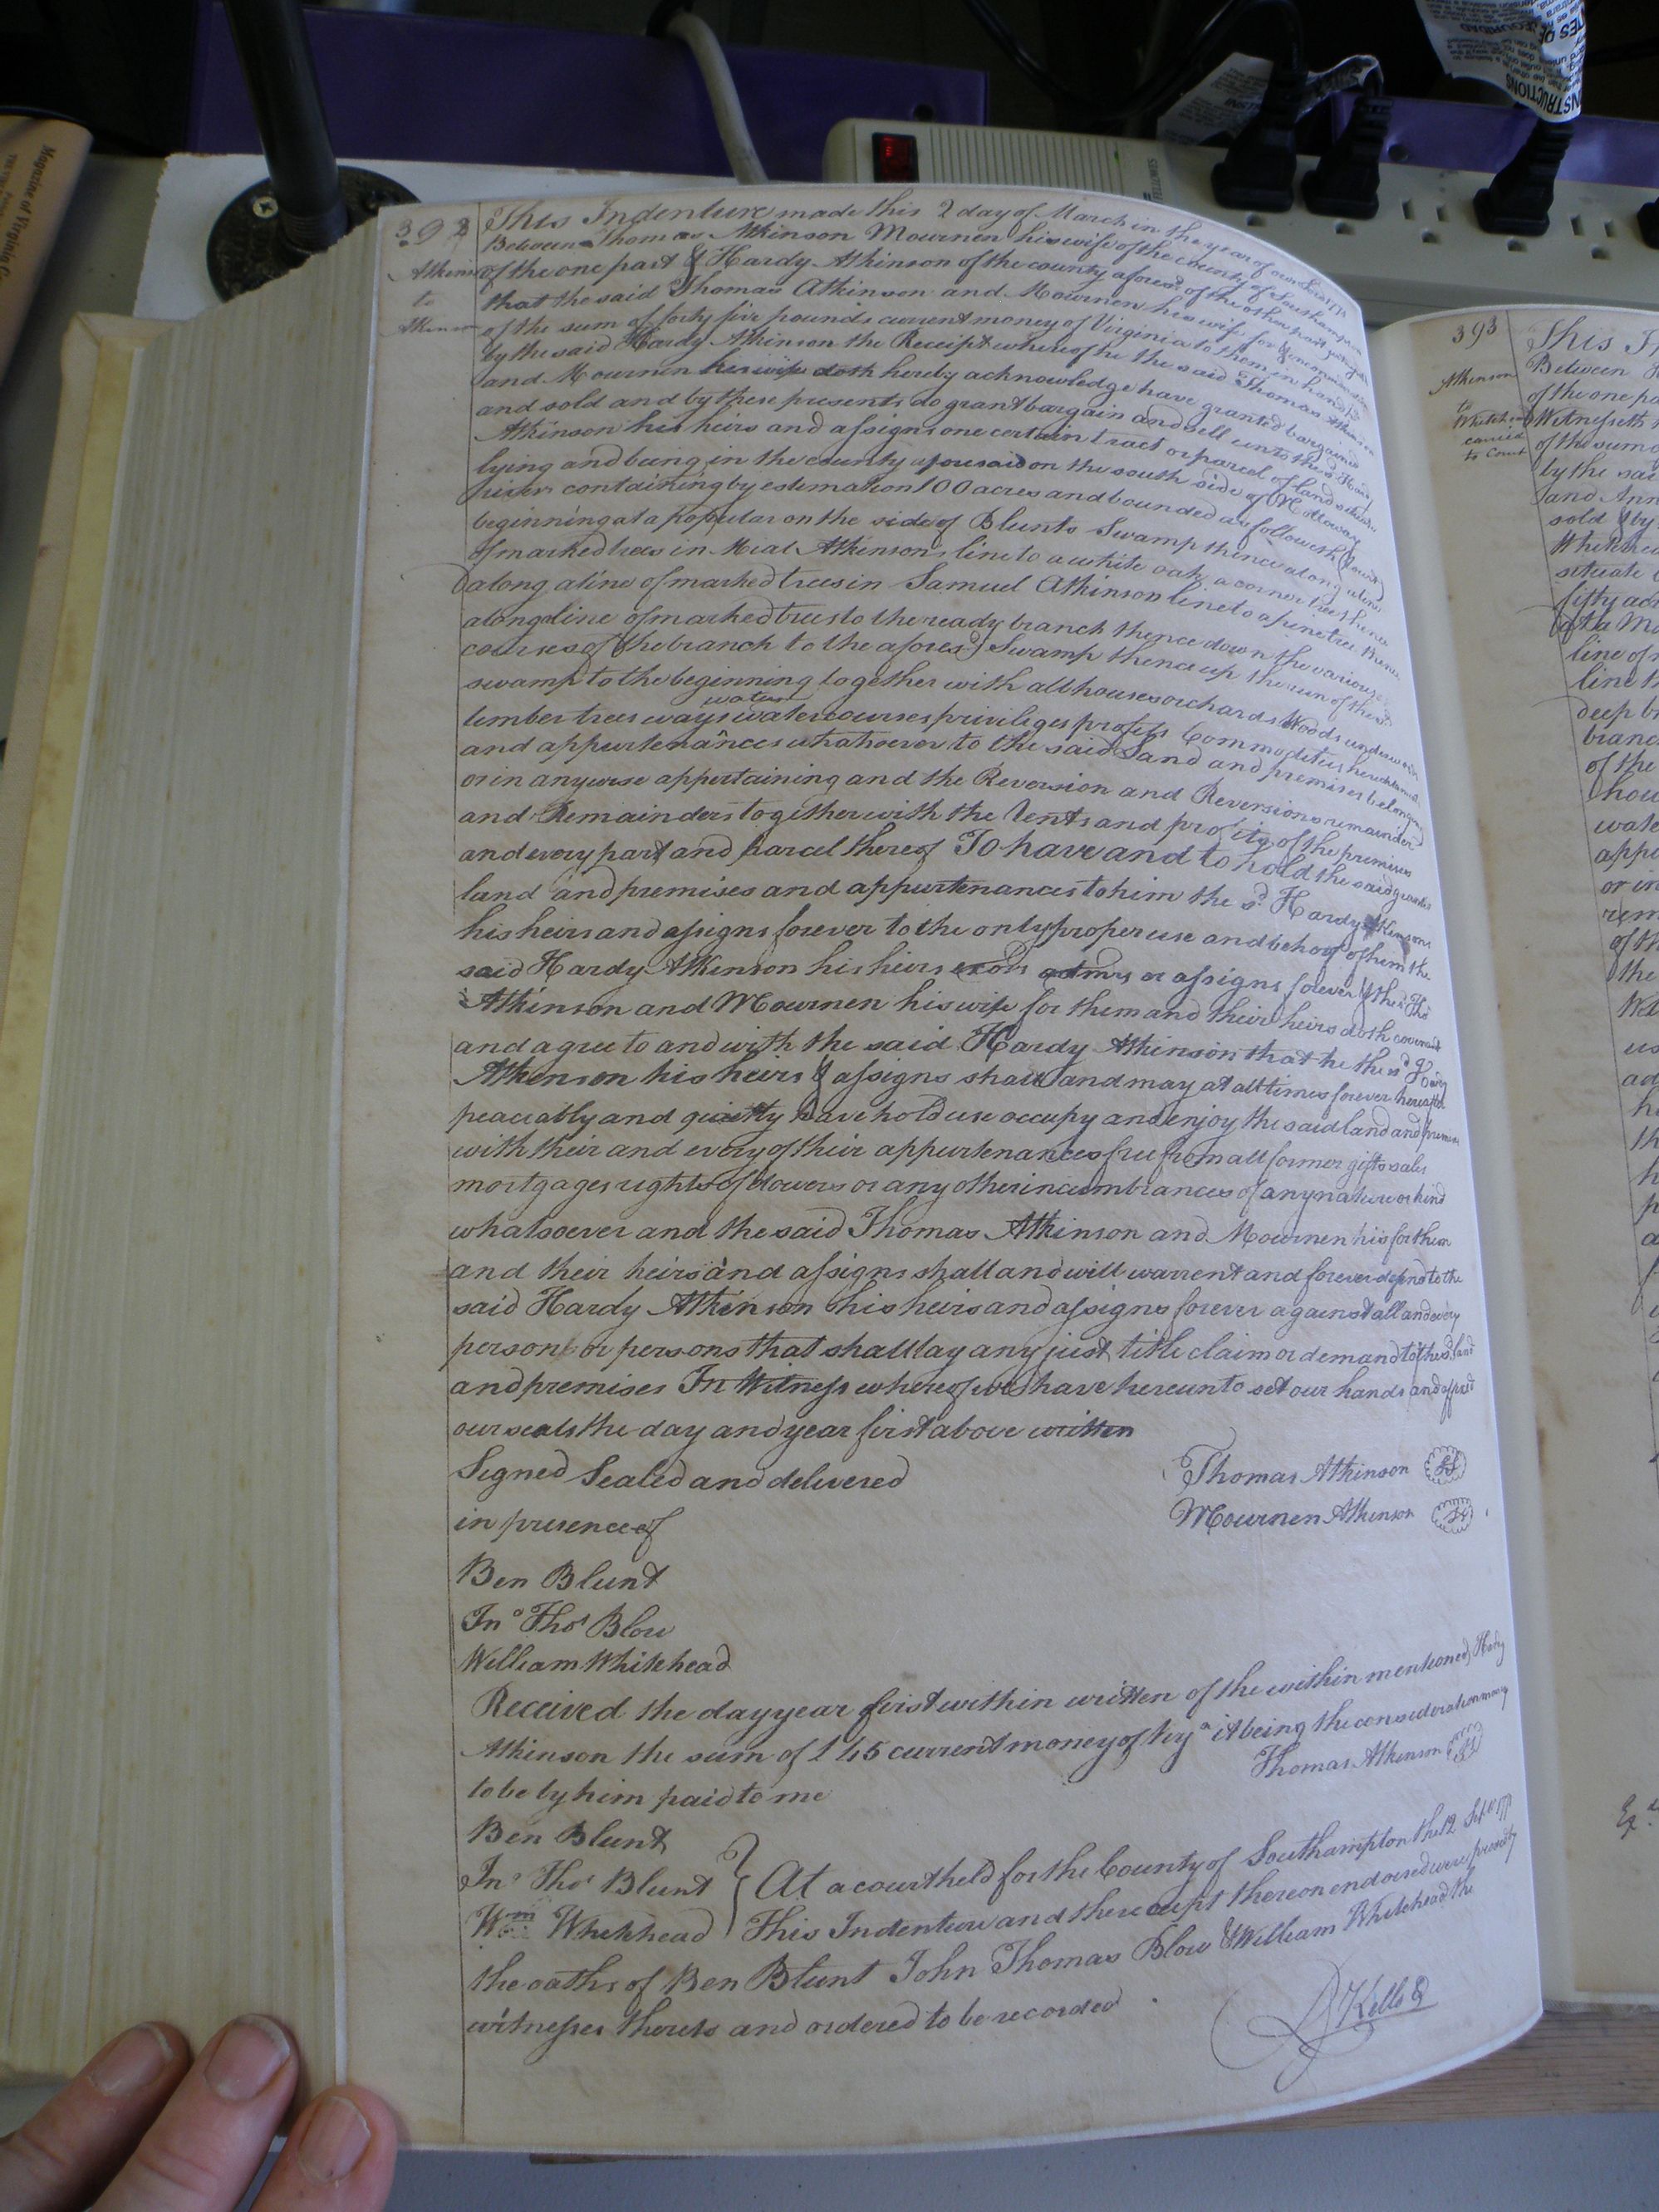 392
Atkinson
to
Atkinson
This Indenture made this 2 day of March in the year of our
Between Thomas Atkinson Mournen his wife of the county of Southampton
of the one part & Hardy Atkinson of the county afores.d of the other part
that the said Thomas Atkinson and Mournen his wife for &
of the sum of forty five pounds current money of Virginia to them in hand
by the said Hardy Atkinson the Receipt whereof he the said Thomas Atkinson
and Mournin her wife doth hereby acknowledge have granted bargained
and sold and by these presents do grant bargain and sell unto the sd Hardy
Atkinson his heirs and assigns one certain tract or parcel of land
lying and being in the county aforesaid on the south side of
river containing by estemation 100 acres and bounded as followeth
beginning at a popular on the side of Blunts Swamp thence along a line
of marked trees in Mial Atkinson's line to a white oak a corner tree thence
along a line of marked trees in Samuel Atkinson line to a pine tree thence
along a line of marked trees to the ready branch thence down the various
courses of the branch to the afores.d Swamp thence up the run of the sd
swamp to the beginning together with all houses orchards Woods underwoods
water
timber trees ways watercourses privileges profits Commodities
and appurtenances whatsoever to the said Land and premises belonging
or in anywise appertaining and the Reversion and Reversions remainder
and Remainders together with the rents and profits of the premises
and every part and parcel thereof To have and to hold the said granted
land and premises and appurtenances to him the s.d Hardy Atkinson
his heirs and assigns forever to the only proper use and behoof of him the
said Hardy Atkinson his heirs exors admrs or assigns forever & the sd Tho
Atkinson and Mournen his wife for them and their heirs doth covenant
and agree to and with the said Hardy Atkinson that he the sd Hardy
Atkenson his heirs & assigns shall and may at all times forever hereafter
peaceably and quietly have hold use occupy and enjoy the said land and premises
with their and every of their appurtenances free from all former gifts sales
mortgages rights of dowers or any other incumbrances of any nature or kind
whatsoever and the said Thomas Atkinson and Mournen his for them
and their heirs and assigns shall and will warrent and forever defend to the
said Hardy Atkinson his heirs and assigns forever against all and every
person or persons that shall lay any just title claim or demand to the sd land
and premises In Witness whereof we have hereunto set our hands and affixed
our seals the day and year first above written
Signed Sealed and delivered
Thomas Atkinson LS
in presence of
Mournen Atkinson LS
Ben Blunt
Jno Thos Blow
William Whitehead
Received the day year first within written of the within mentioned Hardy
Atkinson the sum of £45 current money of Virga it being the consideration money
to be by him paid to me
Thomas Atkenson LS
Ben Blunt
Jno Thos Blunt
Wm Whitehead
At a court held for the County of Southampton the 12 Sepr
This Indenture and the receipt thereon endorsed were proved by
the oaths of Ben Blunt John Thomas Blow & William Whitehead the
witnesses thereto and ordered to be recorded
393
Atkinson
to
Whitehead
carried
to Court
This
Between
of the one pa
Witnesseth
of the sum o
by the sai
and Ann
sold & by
Whitehea
situate
fifty ac
line of
line
deep b
branc
of the
hou
wate
appu
or in
rem
of th
the
Magazine of Virginia
FELLOWES
INSTRUCTIONS